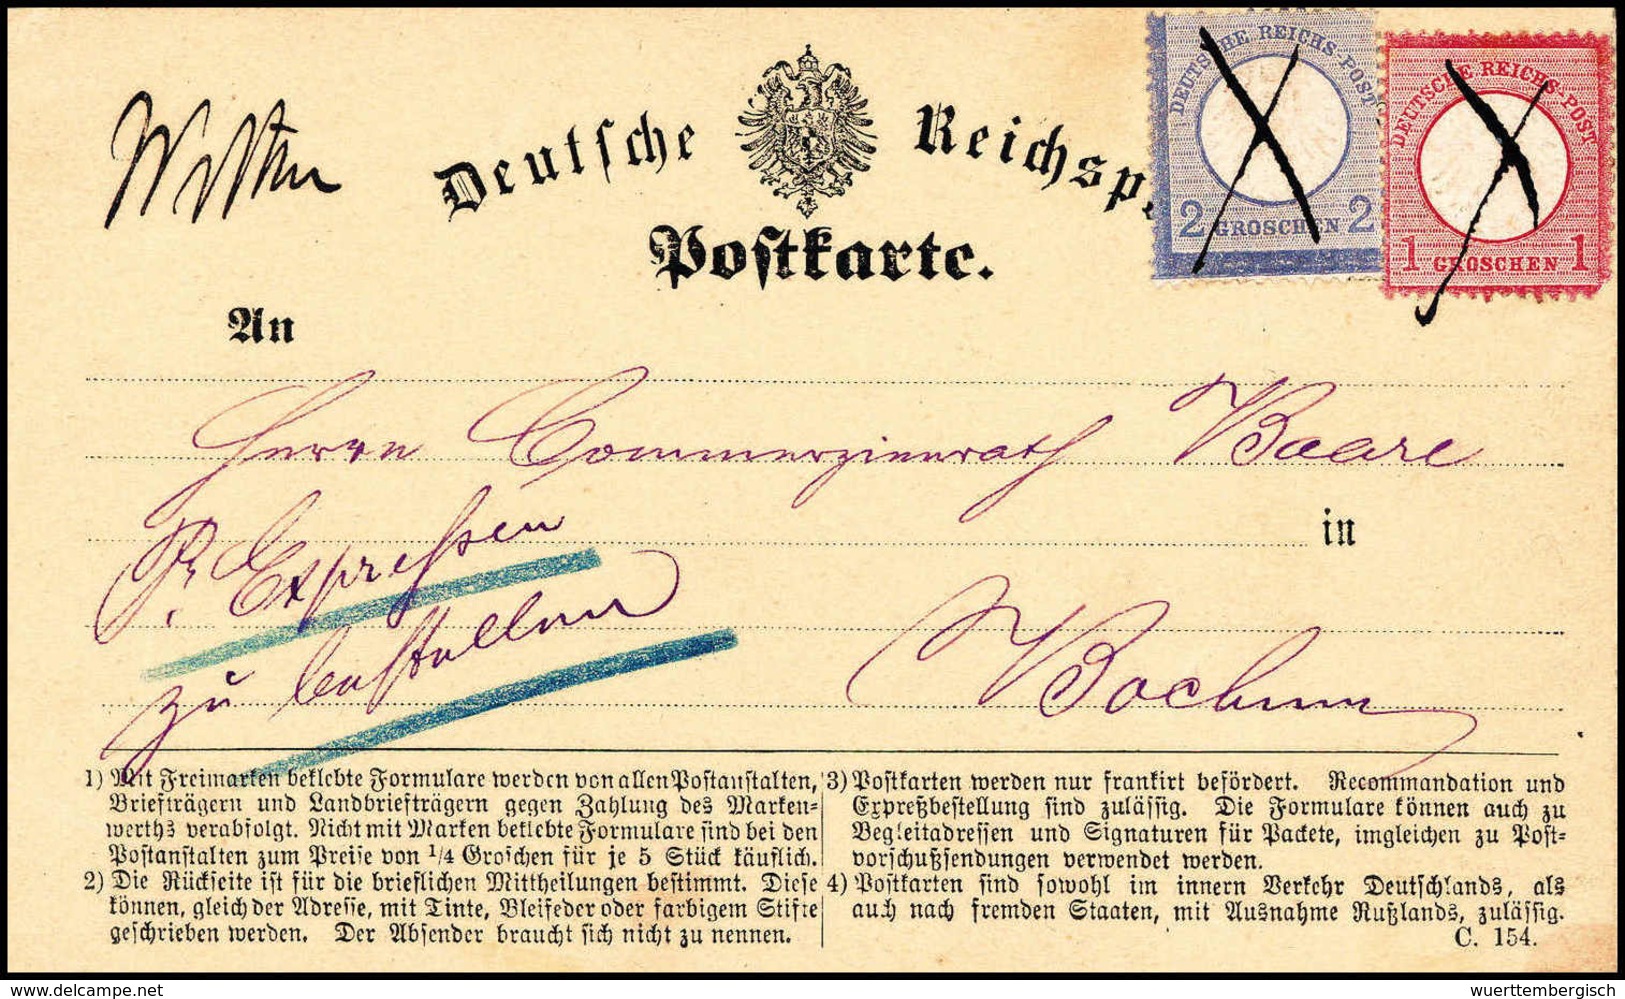 Witten
Deutsche Reichsp
Postkarte.
DEUTSCHE REICHS-POST
2 GROSCHEN 2
DEUTSCHE REICHS-POST
1 GROSCHEN 1
An
Herrn Commerzienrath Baare
in
Pr. Expressen
zu bestellen
Bochum
1) Mit Freimarken beklebte Formulare werden von allen Postanstalten,
Briefträgern und Landbriefträgern gegen Zahlung des Marken-
werths verabfolgt. Nicht mit Marken beklebte Formulare sind bei den
Postanstalten zum Preise von 1/4 Groschen für je 5 Stück käuflich.
2) Die Rückseite ist für die brieflichen Mittheilungen bestimmt. Diese
können, gleich der Adresse, mit Tinte, Bleifeder oder farbigem Stifte
geschrieben werden. Der Absender braucht sich nicht zu nennen.
3) Postkarten werden nur frankirt befördert. Recommandation und
Expreßbestellung sind zulässig. Die Formulare können auch zu
Begleitadressen und Signaturen für Packete, imgleichen zu Post-
vorschußsendungen verwendet werden.
4) Postkarten sind sowohl im innern Verkehr Deutschlands, als
auch nach fremden Staaten, mit Ausnahme Rußlands, zulässig.
C. 154.
www.delcampe.net
wuerttembergisch